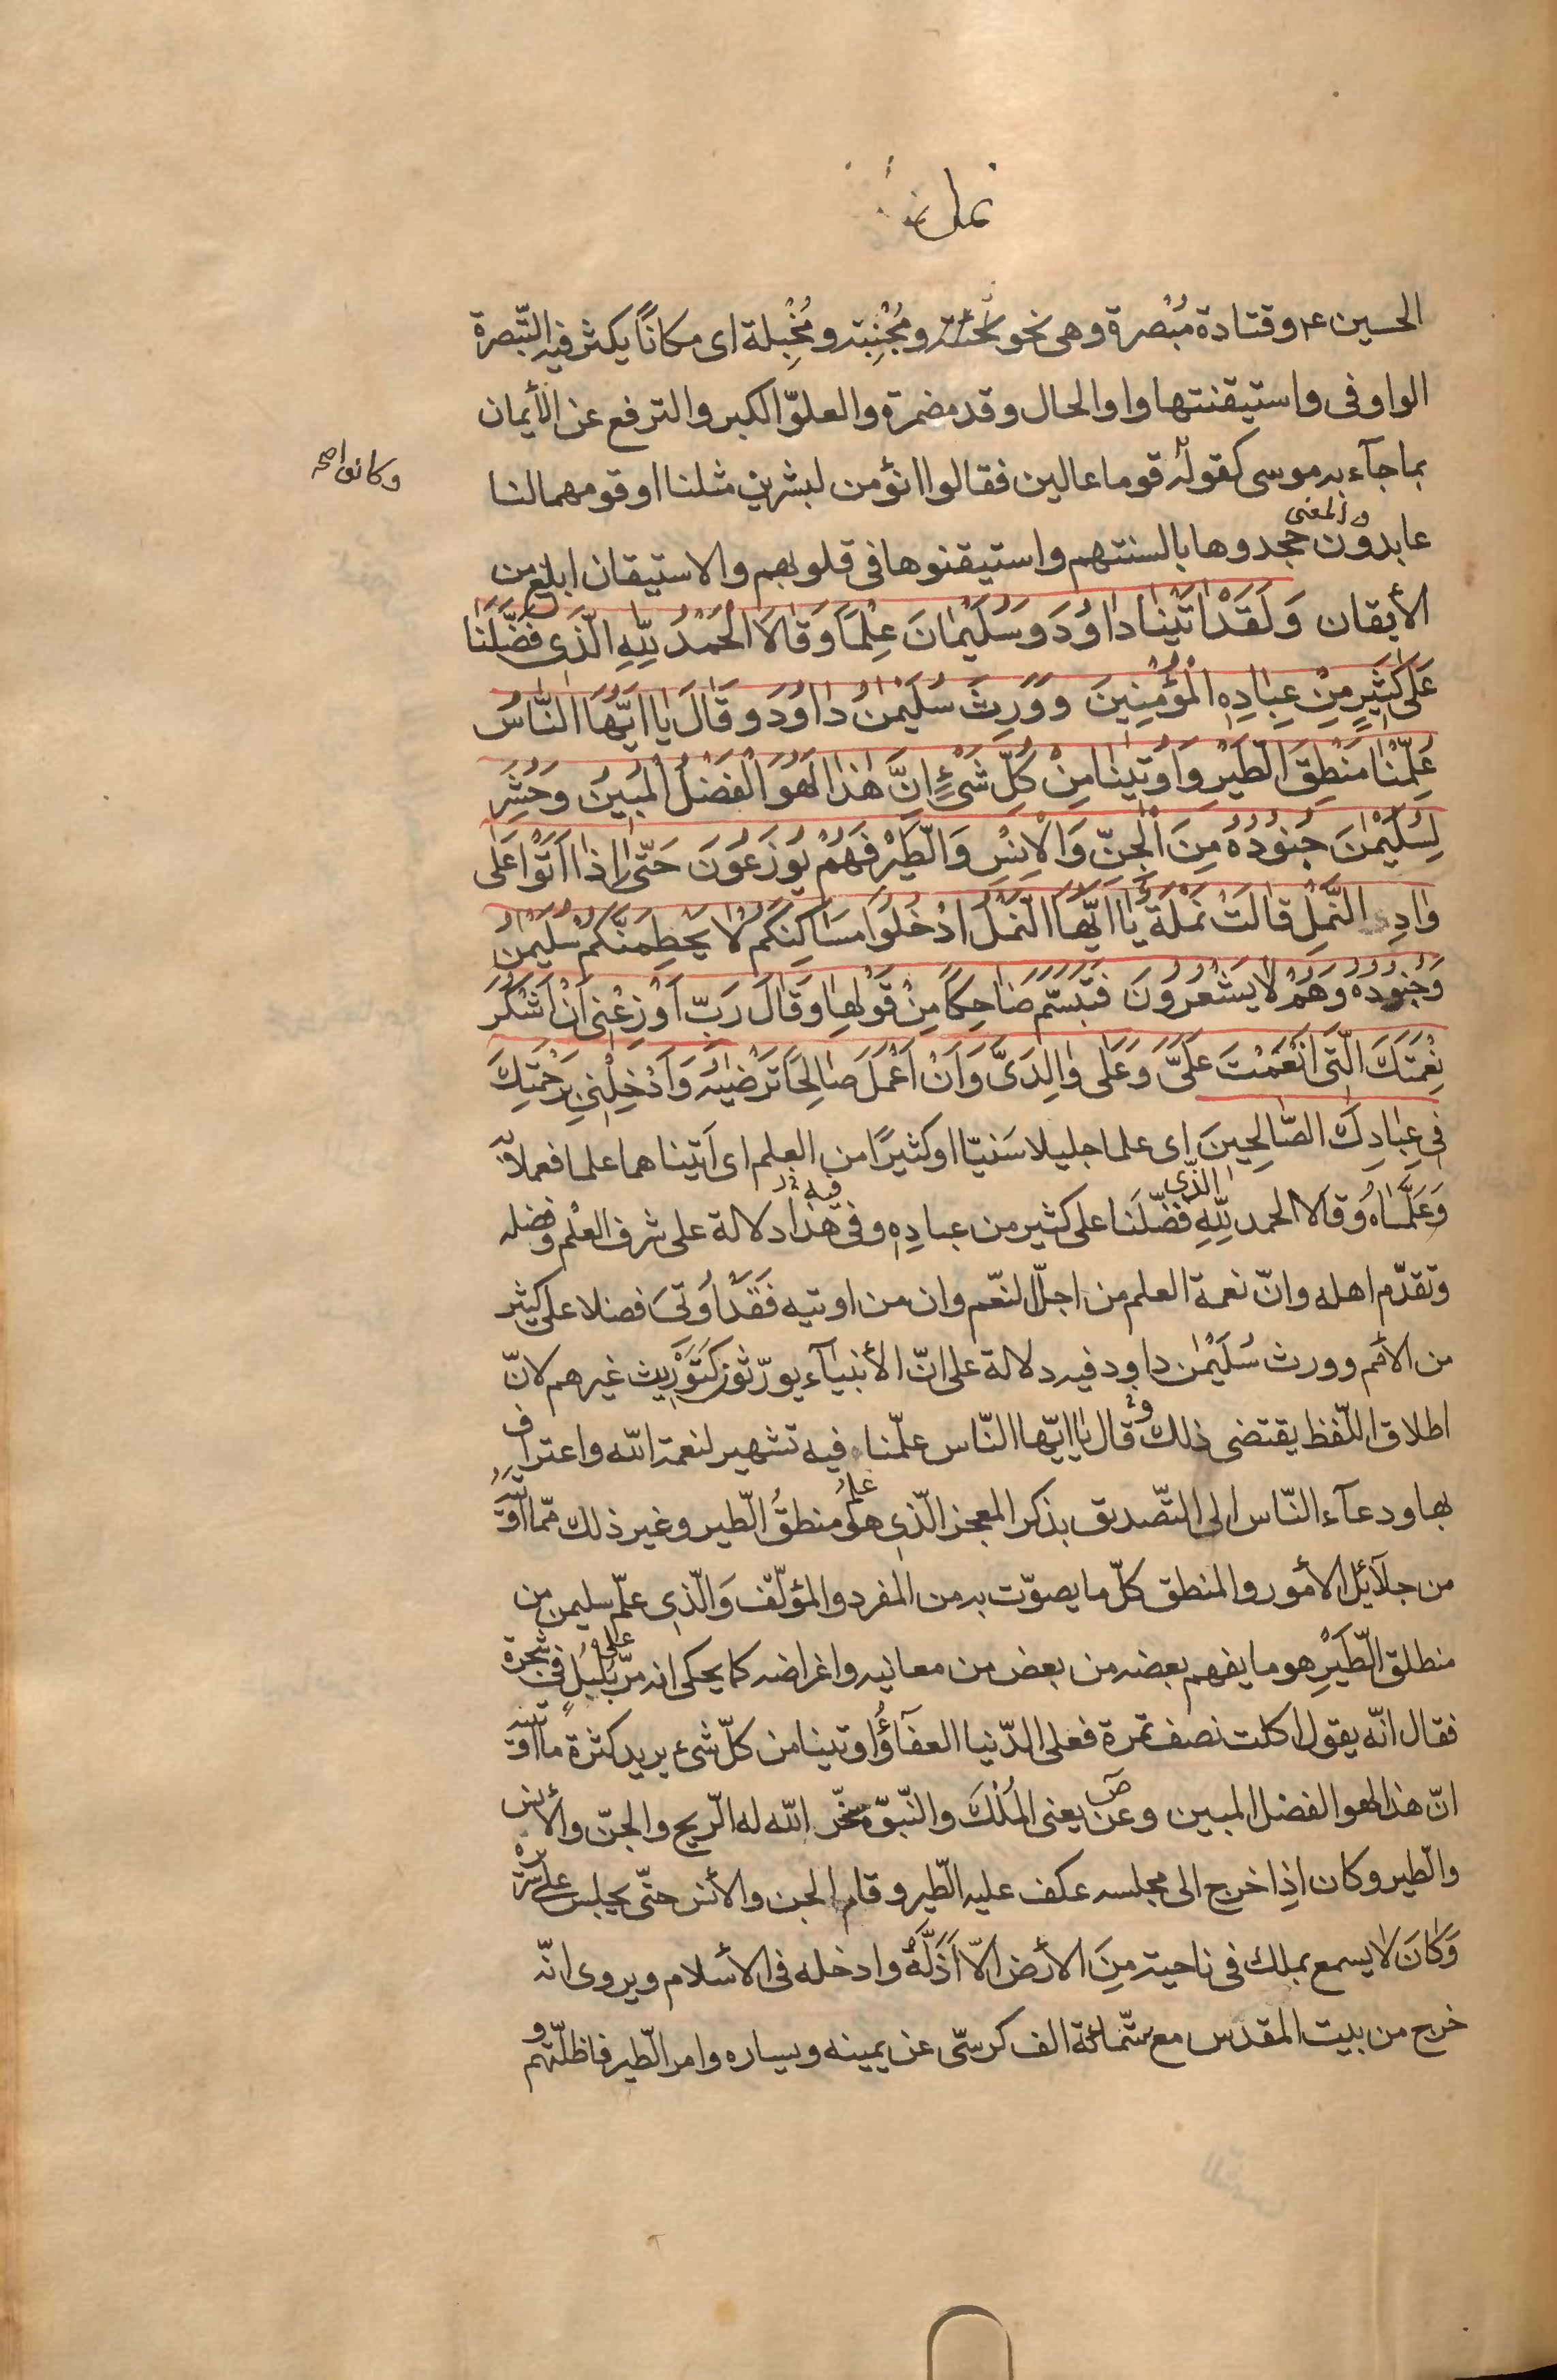 نمل
الحسين ع وقتادة مُبْصرة وهى نحو ومُجْنِبة ومُخْبِلة اى مكاناً يكثر فيه التّبصرة
الواو فى واستيقنتها واو الحال وقد مضمرة والعلوّ الكبر والترفع عن الأيمان
بما جآء به موسى كقوله قوما عالين فقالوا انؤمن لبشرين مثلنا وقومهما لنا
وكانوا صح
عابدون والمعنى جحدوها بالسنتهم واستيقنوها فى قلوبهم والاستيقان ابلغ من
الأيقان وَلَقَدْ اٰتَيْنٰا دٰاوُدَ وَسُلَيْمٰانَ عِلْمًا وَقٰالَا الْحَمْدُ لِلّٰهِ الَّذى فَضَّلَنٰا
عَلىٰ كَثيرٍ مِنْ عِبٰادِهِ الْمُؤْمِنِينَ وَوَرِثَ سُلَيْمٰنُ دٰاوُدَ وَقٰالَ يٰا اَيُّهَا النّٰاسُ
عُلِّمْنٰا مَنْطِقَ الطَّيْرِ وَاُوتينٰا مِنْ كُلِّ شَىْءٍ اِنَّ هٰذٰا لَهُوَ الْفَضْلُ الْمُبينُ وَحُشِرَ
لِسُلَيْمٰنَ جُنُودُهُ مِنَ الْجِنِّ وَالْاِنْسِ وَالطَّيْرِ فَهُمْ يُوزَعُونَ حَتّٰى اِذٰا اَتَوْا عَلىٰ
وٰادِ النَّمْلِ قٰالَتْ نَمْلَةٌ يٰا اَيُّهَا النَّمْلُ ادْخُلُوا مَسٰاكِنَكُمْ لٰا يَحْطِمَنَّكُمْ سُلَيْمٰنُ
وَجُنُودُهُ وَهُمْ لٰا يَشْعُرُونَ فَتَبَسَّمَ ضٰاحِكًا مِنْ قَوْلِهٰا وَقٰالَ رَبِّ اَوْزِعْنى اَنْ اَشْكُرَ
نِعْمَتَكَ الَّتى اَنْعَمْتَ عَلَىَّ وَعَلىٰ وٰالِدَىَّ وَاَنْ اَعْمَلَ صٰالِحًا تَرْضٰيهُ وَاَدْخِلْنى بِرَحْمَتِكَ
فى عِبٰادِكَ الصّٰالِحينَ اى علما جليلا سَنيّا او كثيرًا من العلم اى اٰتيناهما علما فعملا به
وَعَلَّمٰاهُ وَقٰالَا الحمد لِلّٰهِ الّذى فَضّلَنا على كثير من عبادِهِ وفى هٰذا دلالة على شرف العلم وفضله
وتقدّم اهله وانّ نعمة العلم من اجلّ النّعم وان من اوتيه فَقَدْ اُوتىَ فضلا على كثير
من الأمم وورث سُلَيْمٰن داود فيه دلالة على انّ الأنبيآء يورّثون كَتَوْرِيث غيرهم لانّ
اطلاق اللّفظ يقتضى ذلك وقال يٰا ايّها النّاس علّمنا فيه تشهير لنعمة اللّه واعتراف
بها ودعآء النّاس الى التّصديق بذكر المعجز الّذى هو علم منطقُ الطّير وغير ذلك ممّا اوتيه
من جلآئل الأمور والمنطق كلّ ما يصوّت به من المفرد والمؤلّف وَالّذى علّم سليمن من
منطق الطّيْرِ هو ما يفهم بعضه من بعض من معانيه واغراضه كما يحكى انه مرّ على بلبُلٍ فى شجرة
فقال انّه يقول اكلت نصف تمرة فعلى الدّنيا العفآؤُ اوتينا من كلّ شىء يريد كثرة ما اوتيه
انّ هذا لهو الفضل المبين وعن ص يعنى المُلْكَ والنّبوّة سخّر اللّه له الرّيح والجنّ والأنس
والطّير وكان اذا خرج الى مجلسه عكف عليه الطّير وقام الجن والأنس حتّى يجلس على سريره
وَكٰانَ لا يسمع بملك فى ناحية مِنَ الأرض الّا اَذَلَّهُ وادخله فى الأسلام ويروى انّه
خرج من بيت المقدّس مع ستّمائة الف كرسّى عن يمينه ويساره وامر الطّير فاظلّتهم و